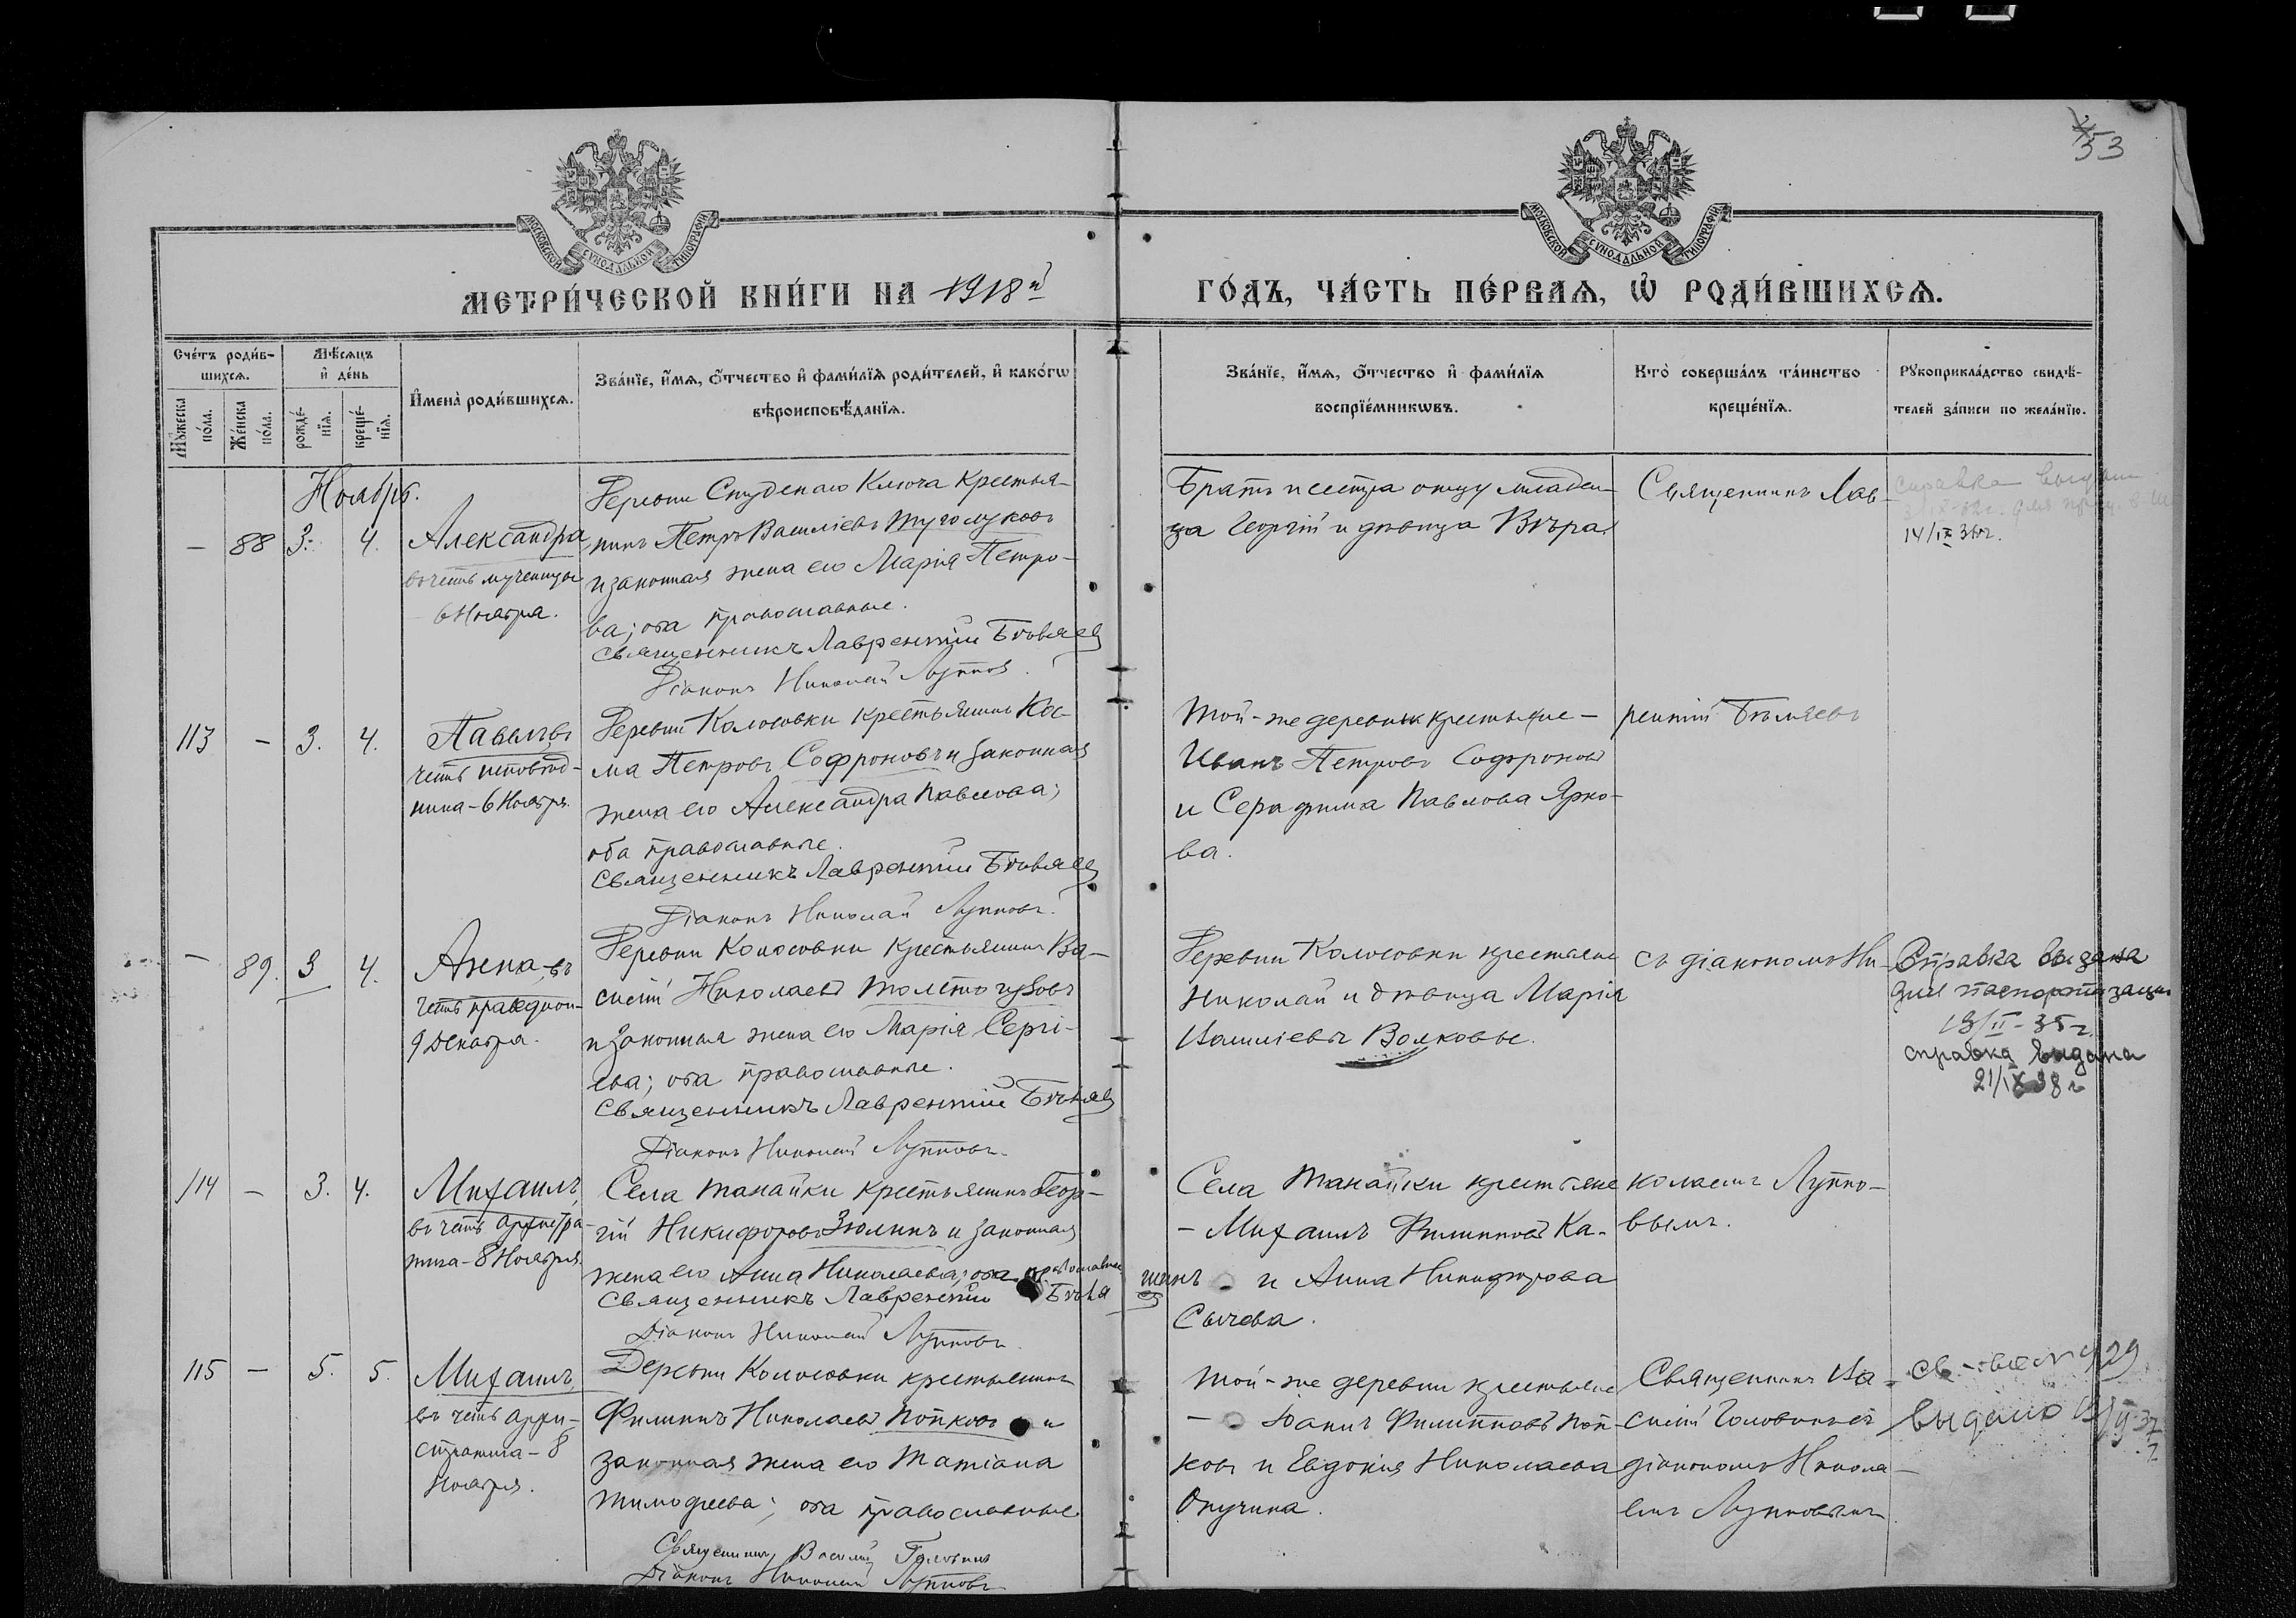 53
МОСКОВСКОЙ СѴНОДАЛЬНОЙ ТИПОГРАФІИ
МОСКОВСКОЙ СѴНОДАЛЬНОЙ ТИПОГРАФІИ
МЕТРИ́ЧЕСКОЙ КНИ́ГИ НА 1918й
ГО́ДЪ, ЧА́СТЬ ПЕ́РВАѦ, Ѡ҆ РОДИ́ВШИХСѦ.
Сче́тъ роди́в-
шихсѧ.
Мѣ́сѧцъ
и҆ де́нь
И҆мена̀ роди́вшихсѧ.
Зва́нїе, и҆́мѧ, ѻ҆́тчество и҆ фами́лїѧ роди́телей, и҆ како́гѡ
вѣроисповѣ́данїѧ.
Мꙋ́жеска
по́ла.
Же́нска
по́ла.
рожде́-
нїѧ.
креще́-
нїѧ.
Зва́нїе, и҆́мѧ, ѻ҆́тчество и҆ фами́лїѧ
воспрїе́мникѡвъ.
Кто̀ соверша́лъ та́инство
креще́нїѧ.
Рꙋкоприкла́дство свидѣ́-
телей за́писи по жела́нїю.
Ноябрь.
— 88 3. 4.
Александра,
въ честь мученицы
6 Ноября.
Деревни Студенаго Ключа крестья-
нинъ Петръ Василіевъ Туголуковъ
и законная жена его Марія Петро-
ва; оба православные.
Священникъ Лаврентій Бѣляев
Діаконъ Николай Луппов
Братъ и сестра отцу младен-
ца Георгій и дѣвица Вѣра.
Священникъ Лав-
справка выдана
14/IX 36г.
113 — 3. 4.
Павелъ въ
честь исповѣд-
ника - 6 Ноября.
Деревни Колосовки крестьянинъ Кос-
ма Петровъ Софроновъ и законная
жена его Александра Павлова;
оба православные.
Священникъ Лаврентій Бѣляев
Діаконъ Николай Лупповъ.
Той-же деревни крестьяне -
Иванъ Петровъ Софроновъ
и Серафима Павлова Ярко-
ва.
рентій Бѣляевъ
— 89. 3 4.
Анна, въ
честь праведной-
9 Декабря.
Деревни Колосовки крестьянинъ Ва-
силій Николаевъ Толстогузовъ
и законная жена его Марія Сергі-
ева; оба православные.
Священникъ Лаврентій Бѣляев
Діаконъ Николай Лупповъ.
Деревни Колосовки крестьяне
Николай и дѣвица Марія
Василіевы Волковы.
съ діакономъ Ни-
Справка выдана
для паспортизации
13/II-35г.
справка выдана
21/IX 38г
114 — 3. 4.
Михаилъ,
въ честь архистра-
тига - 8 Ноября.
Села Танайки крестьянинъ Геор-
гій Никифоровъ Зюлинъ и законная
жена его Анна Николаева; оба православные
Священникъ Лаврентій Бѣля
Діаконъ Николай Лупповъ.
Села Танайки крестьяне
- Михаилъ Филипповъ Ка-
шинъ и Анна Никифорова
Сычева.
колаемъ Луппо-
вымъ.
115 — 5. 5.
Михаилъ,
въ честь архи-
стратига - 8
Ноября.
Деревни Колосовки крестьянинъ
Филиппъ Николаевъ Попковъ и
законная жена его Татіана
Тимофеева; оба православные
Священникъ Василій Головинъ
Діаконъ Николай Лупповъ
Той-же деревни крестьяне
- Іоаннъ Филипповъ Поп-
ковъ и Евдокія Николаева
Опучина.
Священникъ Ва-
силій Головинъ съ
діакономъ Никола-
емъ Лупповымъ.
выдано